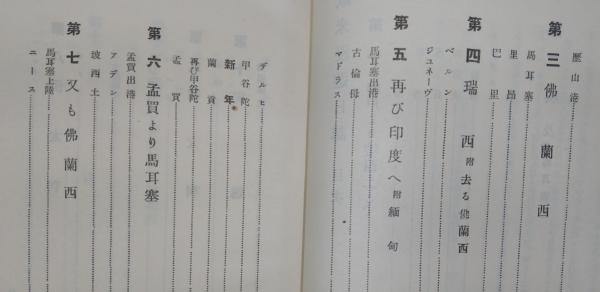 歷山港
第三 佛蘭西
馬耳塞
里昂
巴里
第四 瑞西 附去る佛蘭西
ベルン
ジュネーヴ
第五 再び印度へ 附緬甸
馬耳塞出港
古倫母
マドラス
デルヒ
甲谷陀
新年
蘭貢
再び甲谷陀
孟買
第六 孟買より馬耳塞
孟買出港
アデン
坡西土
第七 又も佛蘭西
馬耳塞上陸
ニース